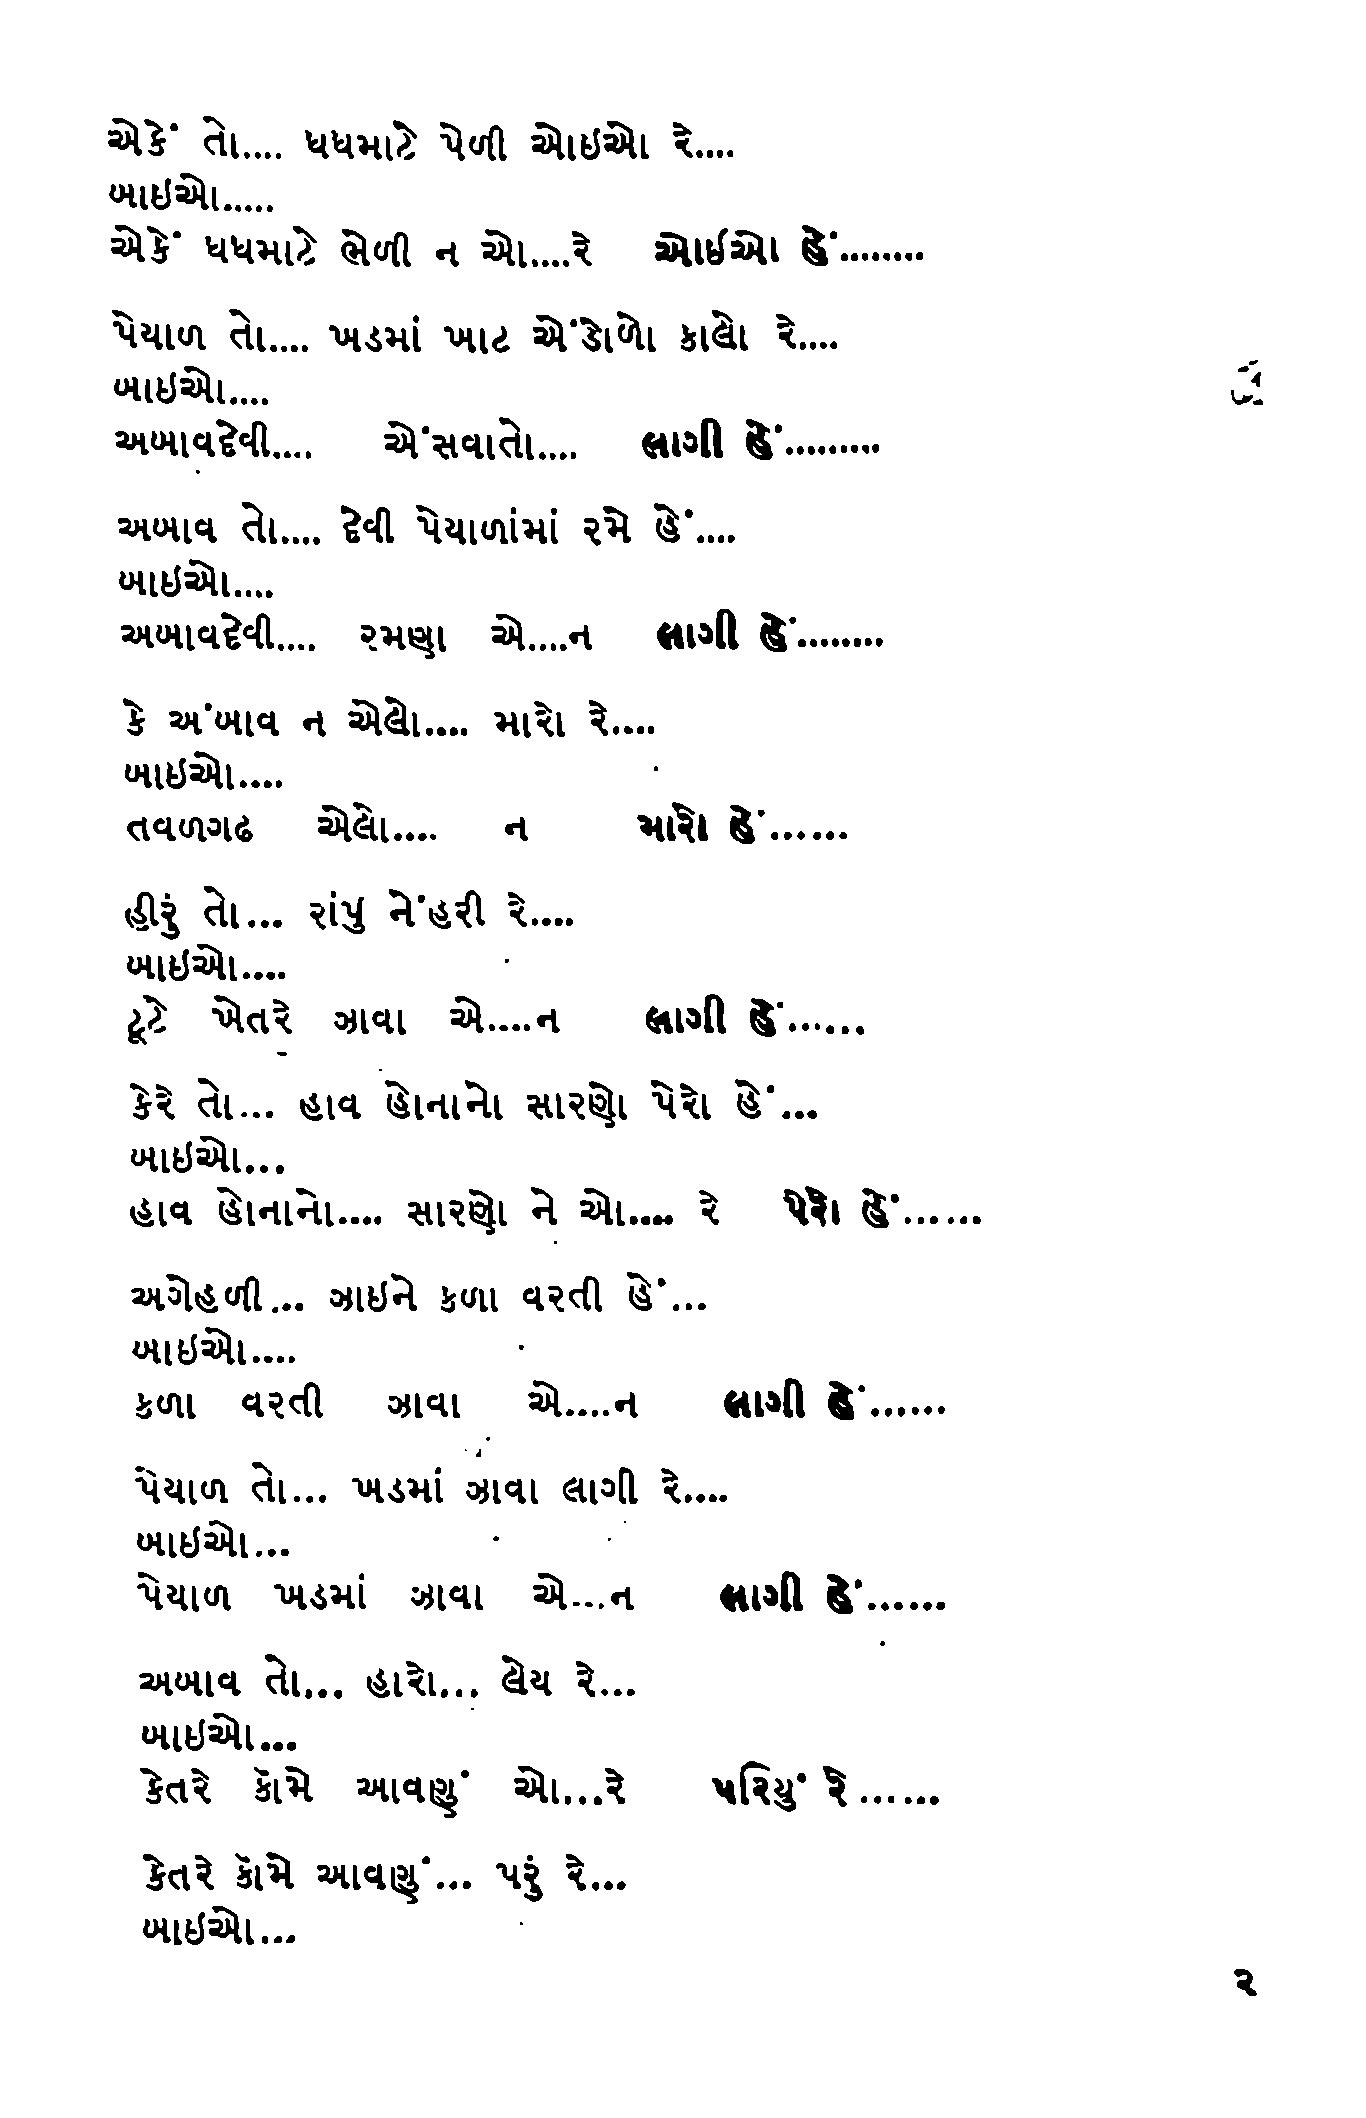 એકેં તો.... ધધમાટે પેળી ઓઇઓ રે....
બાઇઓ.....
એકેં ધધમાટે ભેળી ન ઓ....રે ઓઈઓ હેં........
પેયાળ તો.... ખડમાં ખાટ એંડોળો કાલો રે....
બાઇઓ....
અબાવદેવી.... એંસવાતો.... લાગી હેં.........
અબાવ તો.... દેવી પેયાળાંમાં રમે હેં....
બાઇઓ....
અબાવદેવી.... રમણા એ....ન લાગી હેં........
કે અંબાવ ન એલો.... મારો રે....
બાઇઓ....
તવળગઢ એલો.... ન મારો હેં......
હીરું તો... રાંપુ નેંહરી રે....
બાઇઓ....
ટૂટે ખેતરે ઝાવા એ....ન લાગી હેં......
કેરે તો... હાવ હોનાનો સારણો પેરો હેં...
બાઇઓ...
હાવ હોનાનો.... સારણો ને ઓ.... રે પેરો હેં......
અગેહળી... ઝાઇને કળા વરતી હેં...
બાઇઓ....
કળા વરતી ઝાવા એ....ન લાગી હેં......
પેયાળ તો... ખડમાં ઝાવા લાગી રે....
બાઇઓ...
પેયાળ ખડમાં ઝાવા એ...ન લાગી હેં......
અબાવ તો... હારો... લેય રે...
બાઇઓ...
કેતરે કૉમે આવણું ઓ...રે પરિયું રે......
કેતરે કૉમે આવણું... પરું રે...
બાઇઓ...
૨